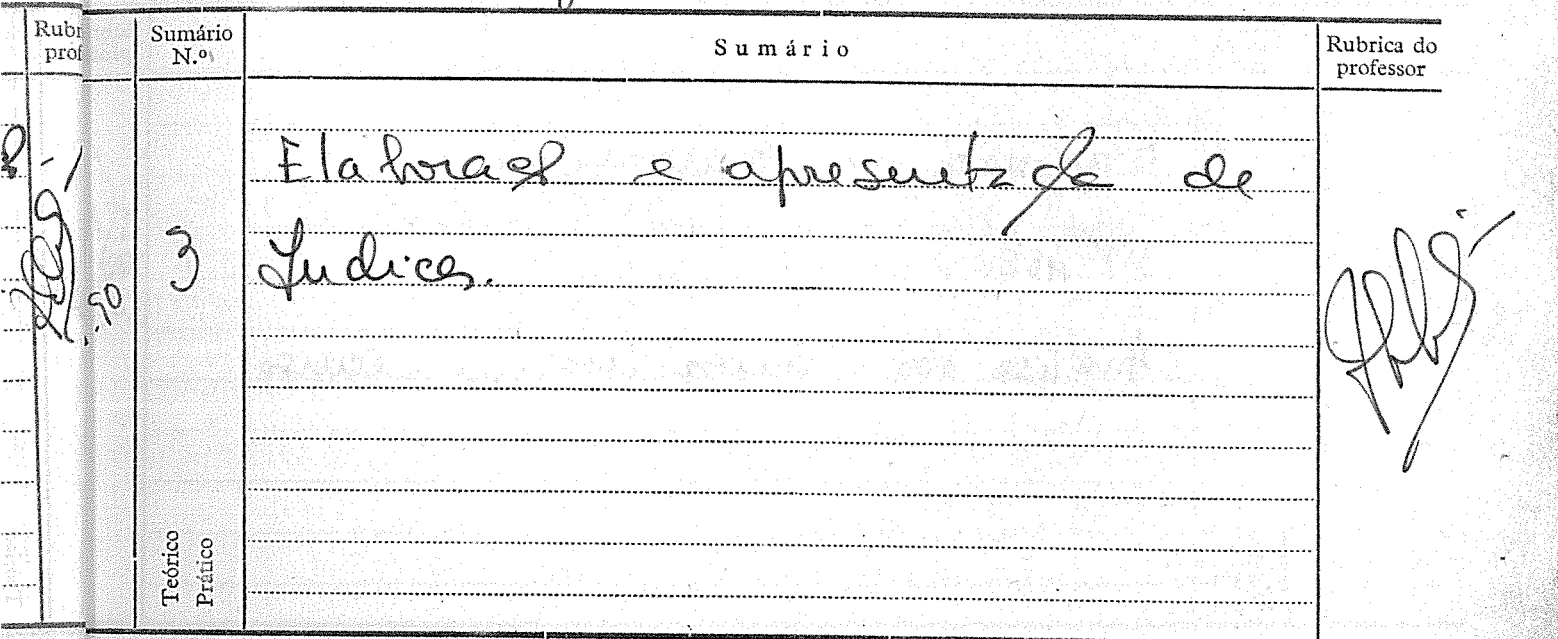 Rubr
prof
Sumário
N.º
Sumário
Rubrica do
professor
Elaboração e apresentação de
3
Índices.
.90
Teórico
Prático